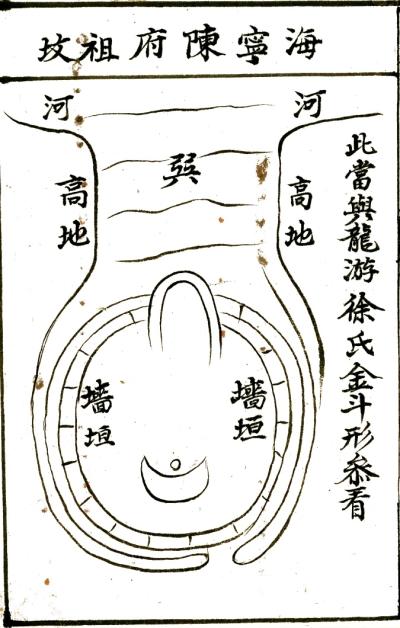 海寧陳府祖坟
此當與龍游徐氏金斗形叅看
河
河
巽
高地
高地
墻垣
墻垣